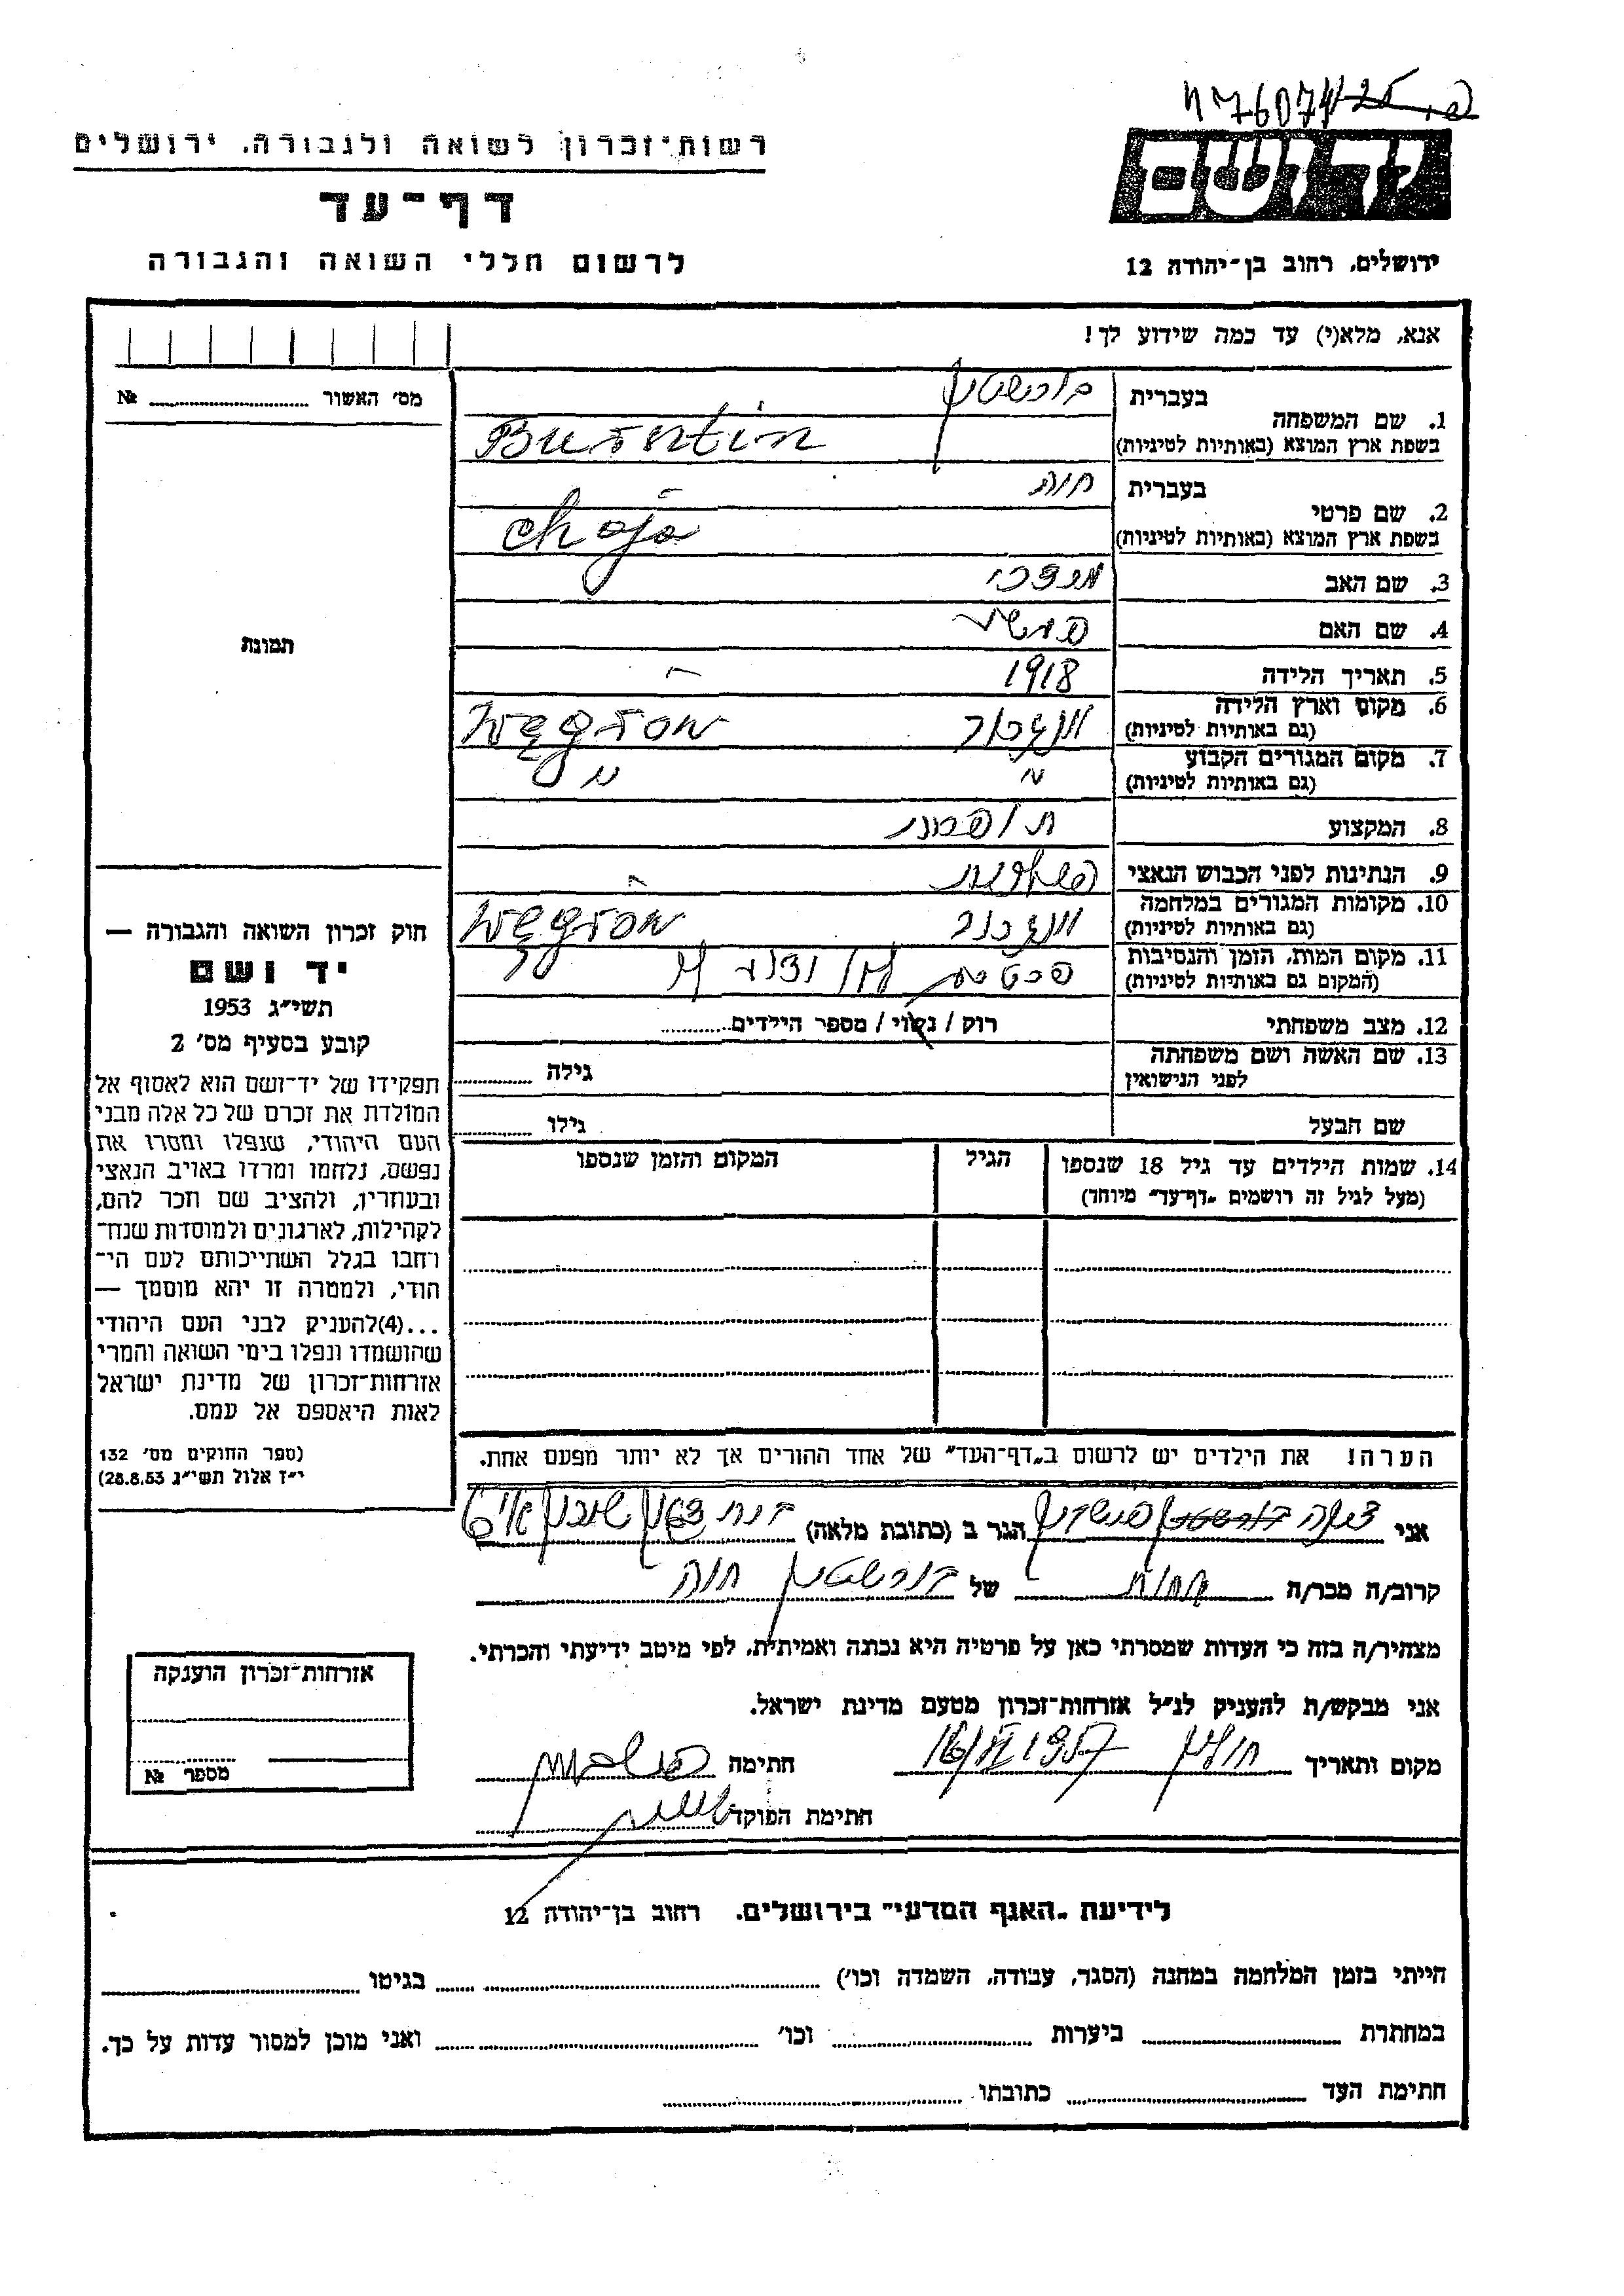 רשות־זכרון לשואה ולגבורה, ירושלים
דף־עד
לרשום חללי השואה והגבורה
ידושם
ירושלים, רחוב בן־יהודה 12
אנא, מלא(י) עד כמה שידוע לך!
מס' האשור № 
תמונת
1. שם המשפחה
בעברית בורשטין
בשפת ארץ המוצא (באותיות לטיניות) Burstin
2. שם פרטי
בעברית חוה
בשפת ארץ המוצא (באותיות לטיניות) Chaja
3. שם האב מרדכי
4. שם האם
5. תאריך הלידה 1918
6. מקום וארץ הלידה
(גם באותיות לטיניות) ונגרוב Węgrów
7. מקום המגורים הקבוע
(גם באותיות לטיניות) " "
8. המקצוע
9. הנתינות לפני הכבוש הנאצי
10. מקומות המגורים במלחמה
(גם באותיות לטיניות) ונגרוב Węgrów
11. מקום המות, הזמן והנסיבות
(המקום גם באותיות לטיניות)
12. מצב משפחתי רוק / נשוי / מספר הילדים
13. שם האשה ושם משפחתה
לפני הנישואין גילה
שם הבעל גילו
14. שמות הילדים עד גיל 18 שנספו הגיל המקום והזמן שנספו
(מעל לגיל זה רושמים „דף־עד” מיוחד)
הערה! את הילדים יש לרשום ב„דף־העד” של אחד ההורים אך לא יותר מפעם אחת.
חוק זכרון השואה והגבורה —
יד ושם
תשי״ג 1953
קובע בסעיף מס' 2
תפקידו של יד־ושם הוא לאסוף אל
המולדת את זכרם של כל אלה מבני
העם היהודי, שנפלו ומסרו את
נפשם, נלחמו ומרדו באויב הנאצי
ובעוזריו, ולהציב שם וזכר להם,
לקהילות, לארגונים ולמוסדות שנח־
רבו בגלל השתייכותם לעם הי־
הודי, ולמטרה זו יהא מוסמך —
...(4)להעניק לבני העם היהודי
שהושמדו ונפלו בימי השואה והמרי
אזרחות־זכרון של מדינת ישראל
לאות היאספם אל עמם.
(ספר החוקים מס' 132
י״ז אלול תשי״ג 28.8.53)
אני הגר ב (כתובת מלאה)
קרוב/ה מכר/ה של בורשטין חוה
מצהיר/ה בזה כי העדות שמסרתי כאן על פרטיה היא נכונה ואמיתית, לפי מיטב ידיעתי והכרתי.
אני מבקש/ת להעניק לנ״ל אזרחות־זכרון מטעם מדינת ישראל.
מקום ותאריך חולון 16/VI 1957 חתימה
חתימת הפוקד
אזרחות־זכרון הוענקה
מספר №
לידיעת „האגף המדעי” בירושלים, רחוב בן־יהודה 12
הייתי בזמן המלחמה במחנה (הסגר, עבודה, השמדה וכו') בגיטו
במחתרת ביערות וכו' ואני מוכן למסור עדות על כך.
חתימת העד כתובתו